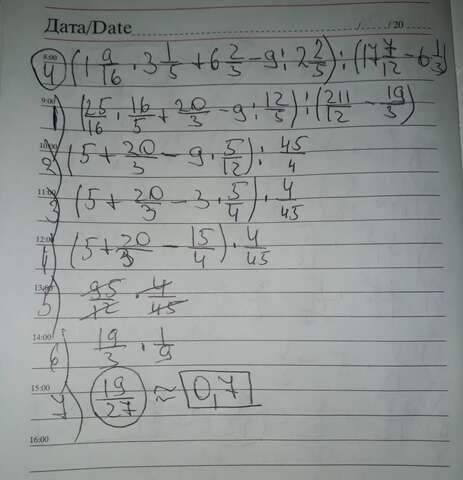 Дата/Date / / 20
8:00 4 (1 9/16 · 3 1/5 + 6 2/3 - 9 : 2 2/5) : (17 7/12 - 6 1/3)
9:00 1) (25/16 · 16/5 + 20/3 - 9 : 12/5) : (211/12 - 19/3)
10:00 2) (5 + 20/3 - 9 · 5/12) : 45/4
11:00 3) (5 + 20/3 - 3 · 5/4) · 4/45
12:00 4) (5 + 20/3 - 15/4) · 4/45
13:00 5) 95/12 · 4/45
14:00 6) 19/3 · 1/9
15:00 7) 19/27 ≈ 0,7
16:00